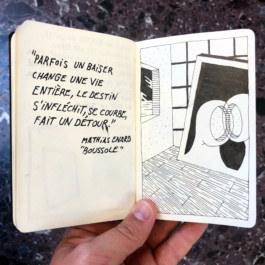 "PARFOIS UN BAISER
CHANGE UNE VIE
ENTIÈRE, LE DESTIN
S'INFLÉCHIT, SE COURBE,
FAIT UN DÉTOUR"
MATHIAS ENARD
"BOUSSOLE"